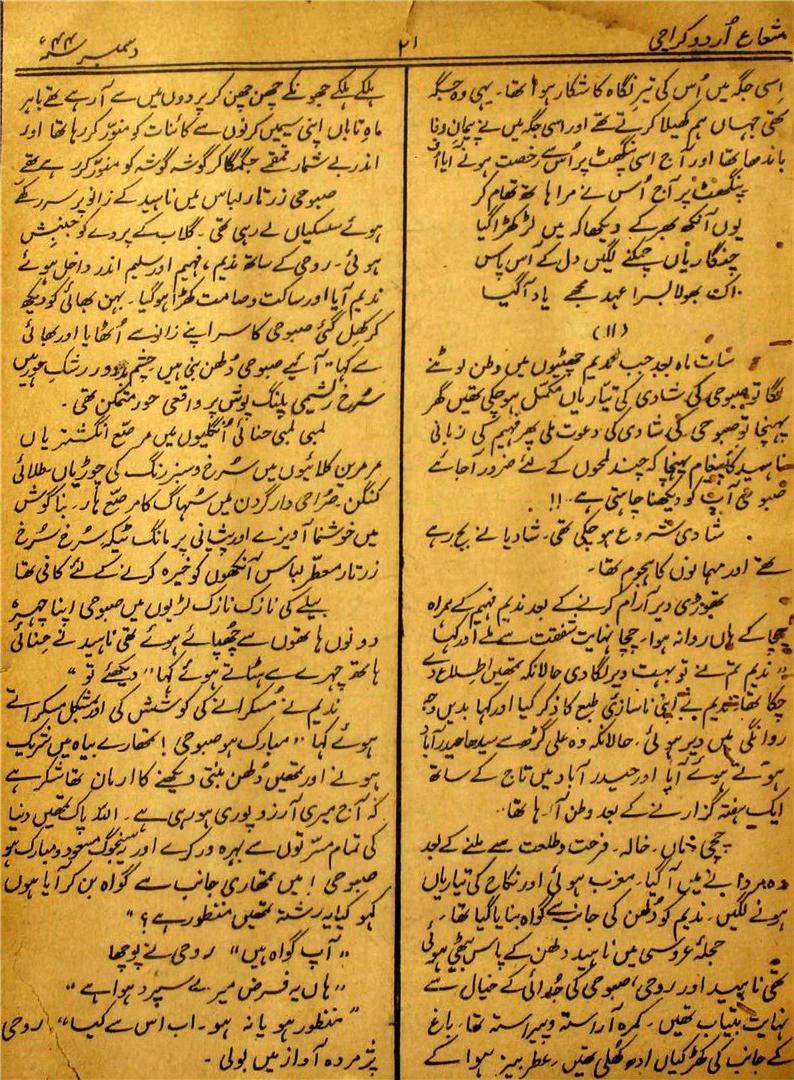 شعاعِ اُردو کراچی
۲۱
دسمبر سنہ ۴۴ء
اِسی جگہ میں اُس کی تیرِ نگاہ کا شکار ہوا تھا۔ یہی وہ جگہ
تھی جہاں ہم کھیلا کرتے تھے اور اسی جگہ میں نے پیمانِ وفا
باندھا تھا اور آج اسی پنگھٹ پر اُس سے رخصت ہونے آیا
پنگھٹ پر آج اُس نے مرا ہاتھ تھام کر
یوں آنکھ بھر کے دیکھا کہ میں لڑکھڑا گیا
چنگاریاں چمکنے لگیں دل کے آس پاس
اک بھولا بسرا عہد مجھے یاد آ گیا
(۱۱)
سات ماہ بعد جب ندیم چھٹیوں میں وطن لوٹنے
لگا تو صبوحی کی شادی کی تیاریاں مکمّل ہو چکی تھیں گھر
پہنچا تو صبوحی کی شادی کی دعوت ملی پھر فہیم کی زبانی
ناہید کا پیغام پہنچا کہ چند لمحوں کے لئے ضرور آ جائے
صبوحی آپ کو دیکھنا چاہتی ہے..!!
شادی شروع ہو چکی تھی۔ شادیانے بج رہے
تھے اور مہمانوں کا ہجوم تھا۔
تھوڑی دیر آرام کرنے کے بعد ندیم فہیم کے ہمراہ
چچا کے ہاں روانہ ہوا۔ چچا نہایت شفقت سے ملے اور کہا
"ندیم تم نے تو بہت دیر لگا دی حالانکہ تمھیں اطلاع دے
چکا تھا ندیم نے اپنی ناسازیٔ طبع کا ذکر کیا اور کہا بدیں وجہ
روانگی میں دیر ہوئی۔ حالانکہ وہ علی گڑھ سے سیدھا حیدرآباد
ہوتے ہوئے آیا اور حیدر آباد میں تاج کے ساتھ
ایک ہفتہ گزارنے کے بعد وطن آ رہا تھا۔
چچی اماں۔ خالہ۔ فرحت و طلعت سے ملنے کے بعد
وہ مردانے میں آ گیا۔ مغرب ہوئی اور نکاح کی تیاریاں
ہونے لگیں۔ ندیم کو دُلھن کی جانب سے گواہ بنایا گیا تھا۔
حجلۂ عروسی میں ناہید دلھن کے پاس بیٹھی ہوئی
تھی ناہید اور روحی، صبوحی کی جُدائی کے خیال سے
نہایت بیتاب تھیں۔ کمرہ آراستہ و پیراستہ تھا۔ باغ
کے جانب کی کھڑکیاں ادھ کھُلی تھیں۔ عطر بیز ہوا کے
ہلکے ہلکے جھونکے چھن چھن کر پردوں میں سے آ رہے تھے باہر
ماہِ تاباں اپنی سیمیں کرنوں سے کائنات کو منوّر کر رہا تھا اور
اندر بے شمار قمقمے جگمگا کر گوشہ گوشہ کو منوّر کر رہے تھے
صبوحی زرتار لباس میں ناہید کے زانو پر سر رکھے
ہوئے سسکیاں لے رہی تھی۔ گلاب کے پردے کو جنبش
ہوئی۔ روحی کے ساتھ ندیم، فہیم اور سلیم اندر داخل ہوئے
ندیم آیا اور ساکت و صامت کھڑا ہو گیا۔ بہن بھائی کو دیکھ
کر کھِل گئی صبوحی کا سر اپنے زانو سے اُٹھایا اور بھائی
سے کہا "آئیے صبوحی دُلھن بنی ہیں چشمِ بد دور رشکِ حور ہیں
سُرخ ریشمی پلنگ پوش پر واقعی حور متمکّن تھی۔
لمبی لمبی حنائی اُنگلیوں میں مرصّع انگشتریاں
مرمریں کلائیوں میں سُرخ و سبز رنگ کی چوڑیاں طلائی
کنگن۔ صُراحی دار گردن میں سُہاگ کا مرصّع ہار۔ بناگوش
میں خوشنما آویزے اور پیشانی پر مانگ ٹیکہ سُرخ سُرخ
زرتار معطّر لباس آنکھوں کو خیرہ کرنے کے لئے کافی تھا
بیلے کی نازک نازک لڑیوں میں صبوحی اپنا چہرہ
دونوں ہاتھوں سے چھُپائے ہوئے تھی ناہید نے حِنائی
ہاتھ چہرے سے ہٹاتے ہوئے کہا "دیکھئے تو"
ندیم نے مُسکرانے کی کوشش کی اور بمشکل مسکراتے
ہوئے کہا "مبارک ہو صبوحی! تمھارے بیاہ میں شریک
ہونے اور تمھیں دُلھن بنتی دیکھنے کا ارمان تھا شکر ہے
کہ آج میری آرزو پوری ہو رہی ہے۔ اللہ پاک تمھیں دنیا
کی تمام مسرّتوں سے بہرہ ور کرے اور سنجوگ مسعود و مبارک ہو
صبوحی! میں تمھاری جانب سے گواہ بن کر آیا ہوں
کہو کیا یہ رشتہ تمھیں منظور ہے؟"
"آپ گواہ ہیں" روحی نے پوچھا
"ہاں یہ فرض میرے سپرد ہوا ہے"
"منظور ہو یا نہ ہو۔ اب اس سے کیا"، روحی
پژمردہ آواز میں بولی۔